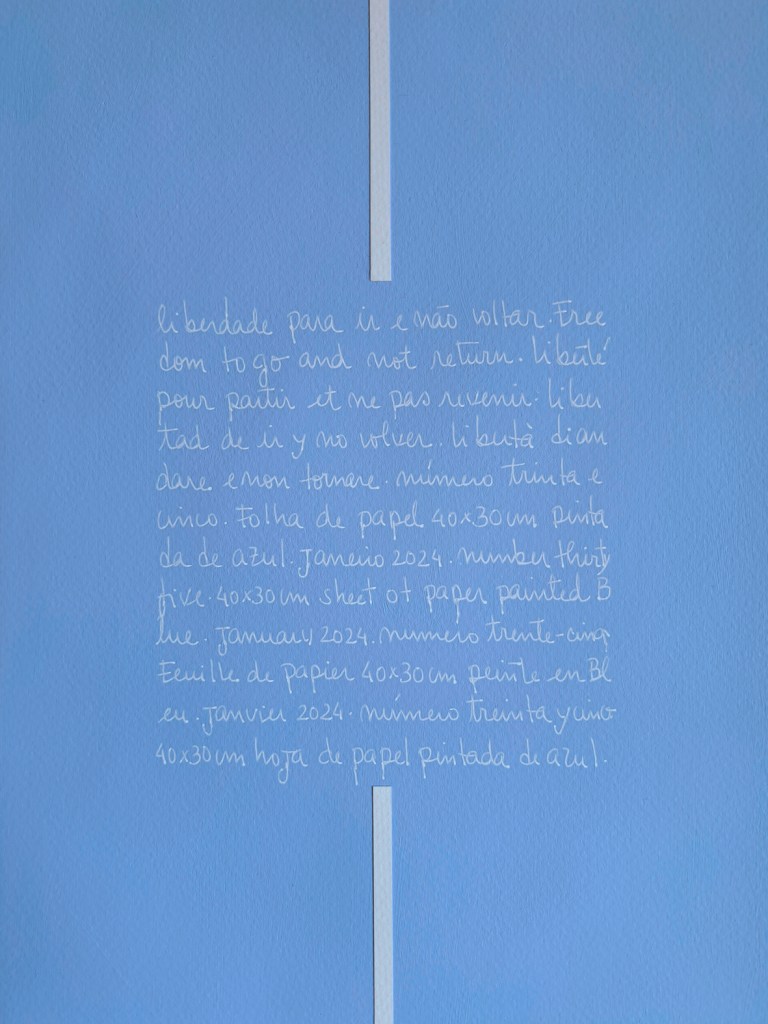 liberdade para ir e não voltar. Free
dom to go and not return. liberté
pour partir et ne pas revenir. liber
tad de ir y no volver. libertà di an
dare e non tornare. número trinta e
cinco. Folha de papel 40x30cm pinta
da de azul. Janeiro 2024. number thirty
five. 40x30cm sheet of paper painted B
lue. January 2024. numero trente-cinq
Feuille de papier 40x30cm peinte en Bl
eu. Janvier 2024. número treinta y cinco
40x30cm hoja de papel pintada de azul.